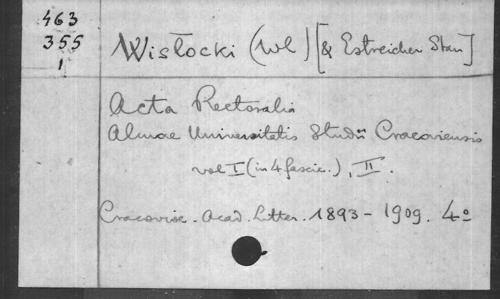 463
355
1
Wisłocki (Wl) [& Estreicher Stan]
Acta Rectoralia
Almae Universitatis Studii Cracoviensis
vol I (in 4 fascic.), II.
Cracoviae. Acad. Litter. 1893 - 1909. 4º